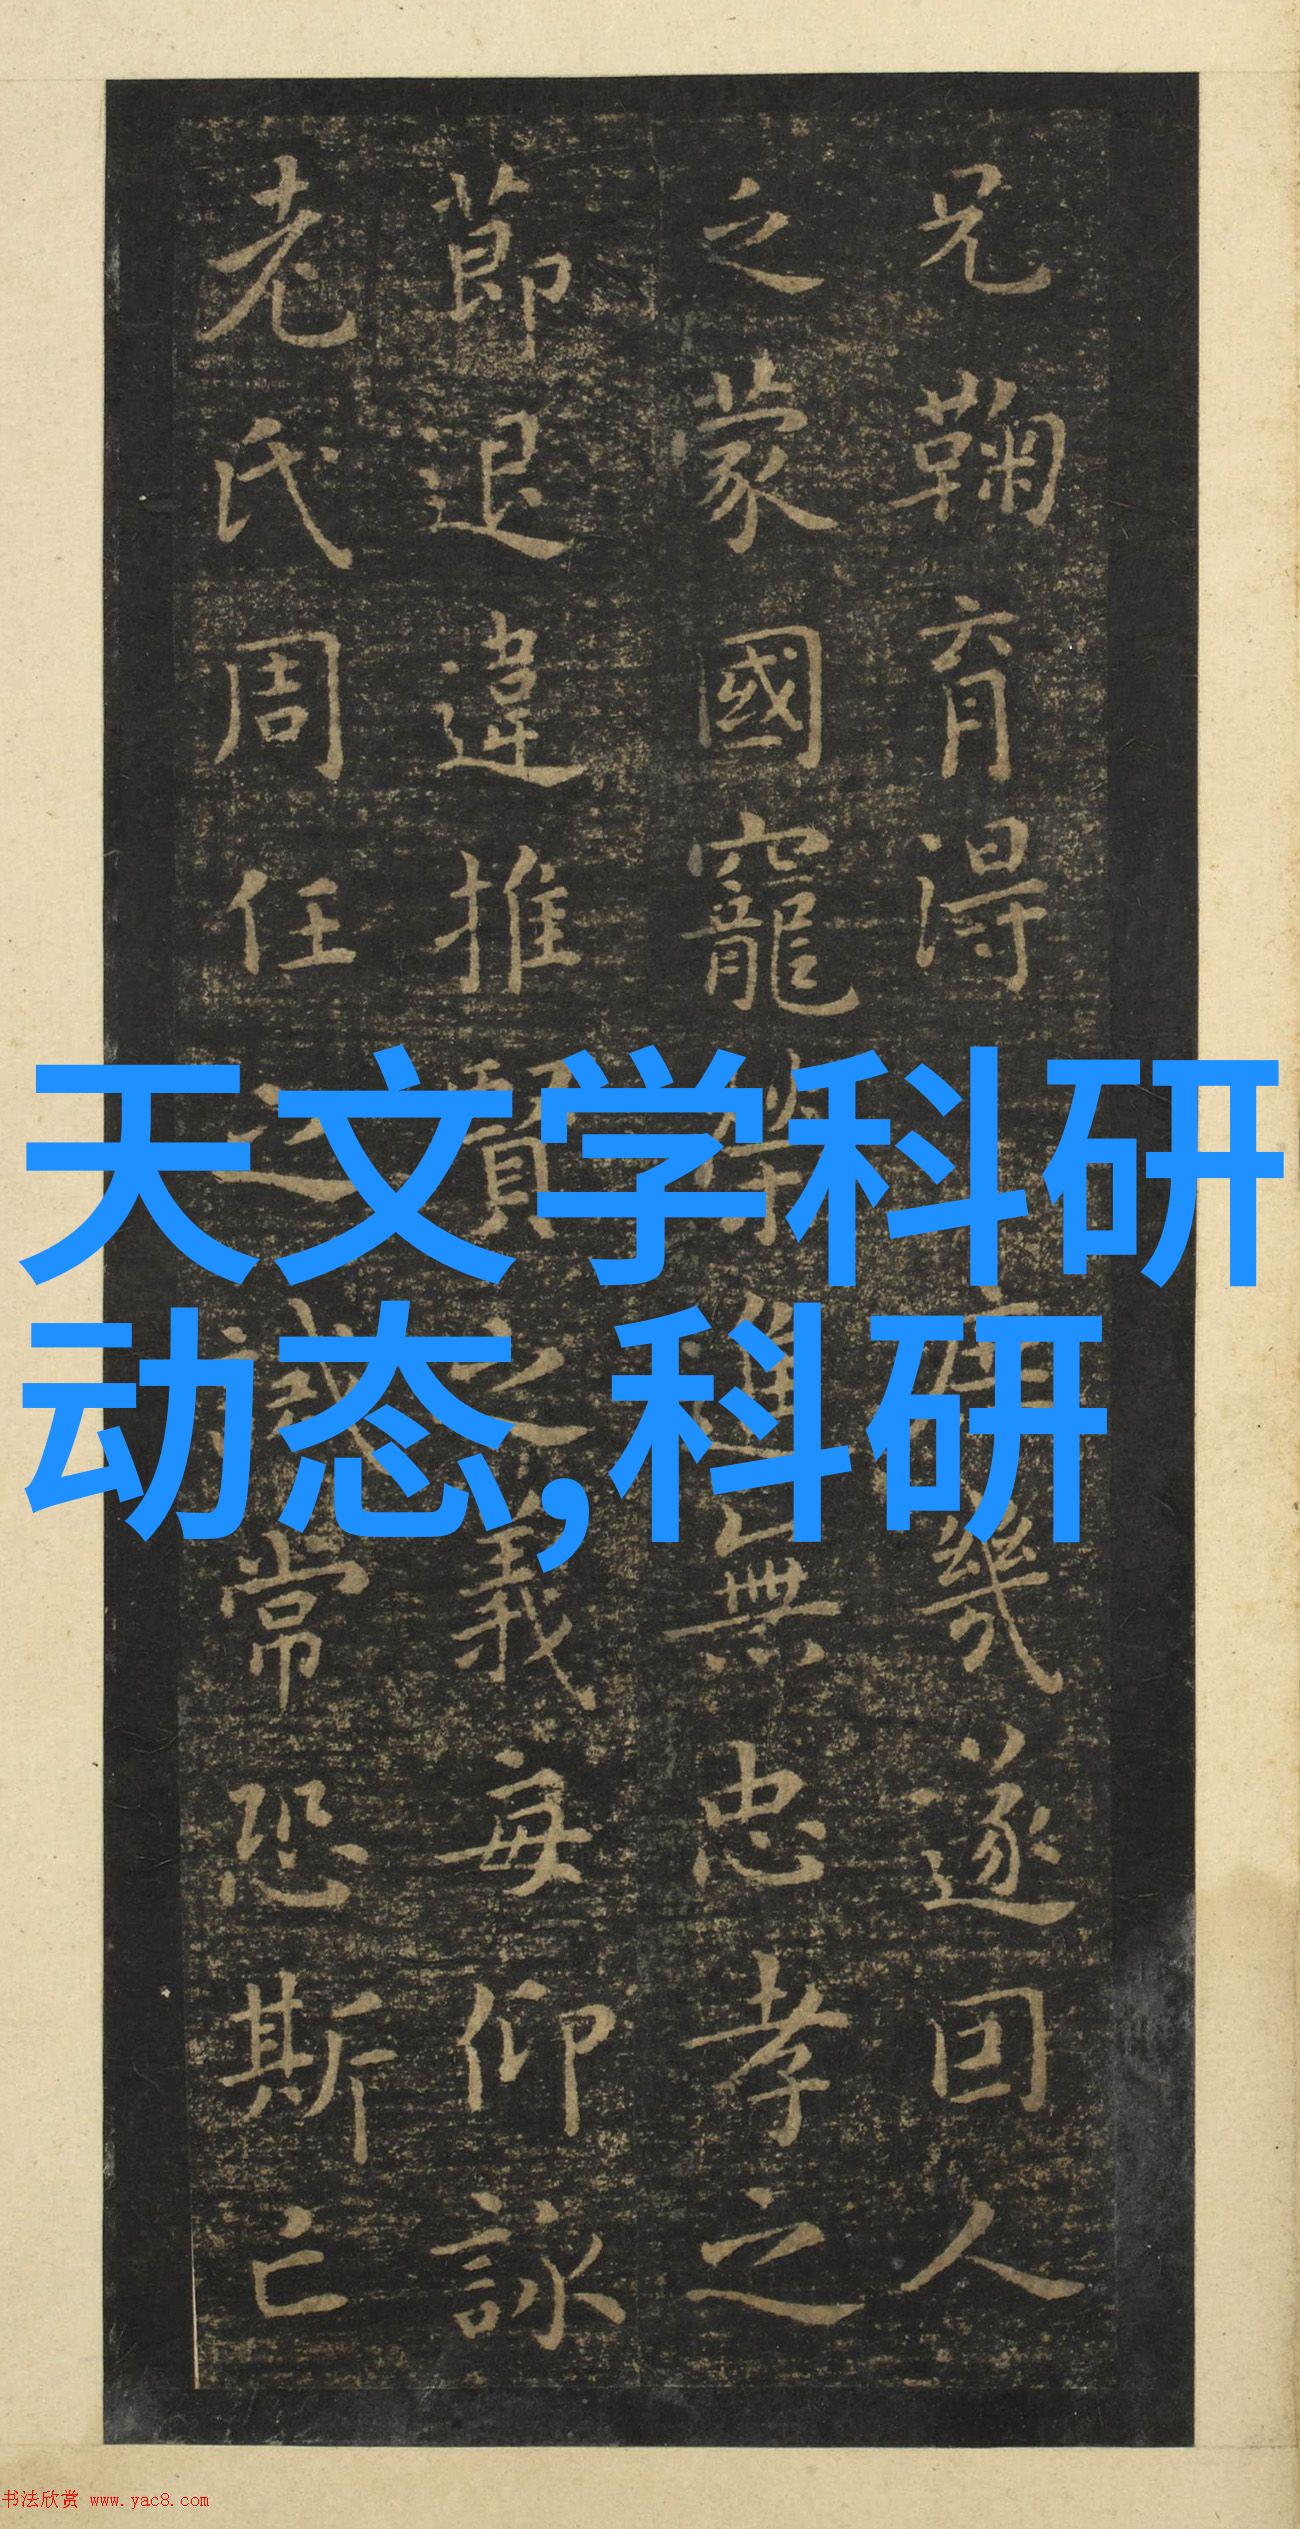 兄鞠育得庶幾遂囙人
之蒙國寵榮進無忠孝之
節退違推賢之義每仰詠
老氏周任之誡常恐斯亡
天文学科研
动态,科研
书法欣赏 www.yac8.com